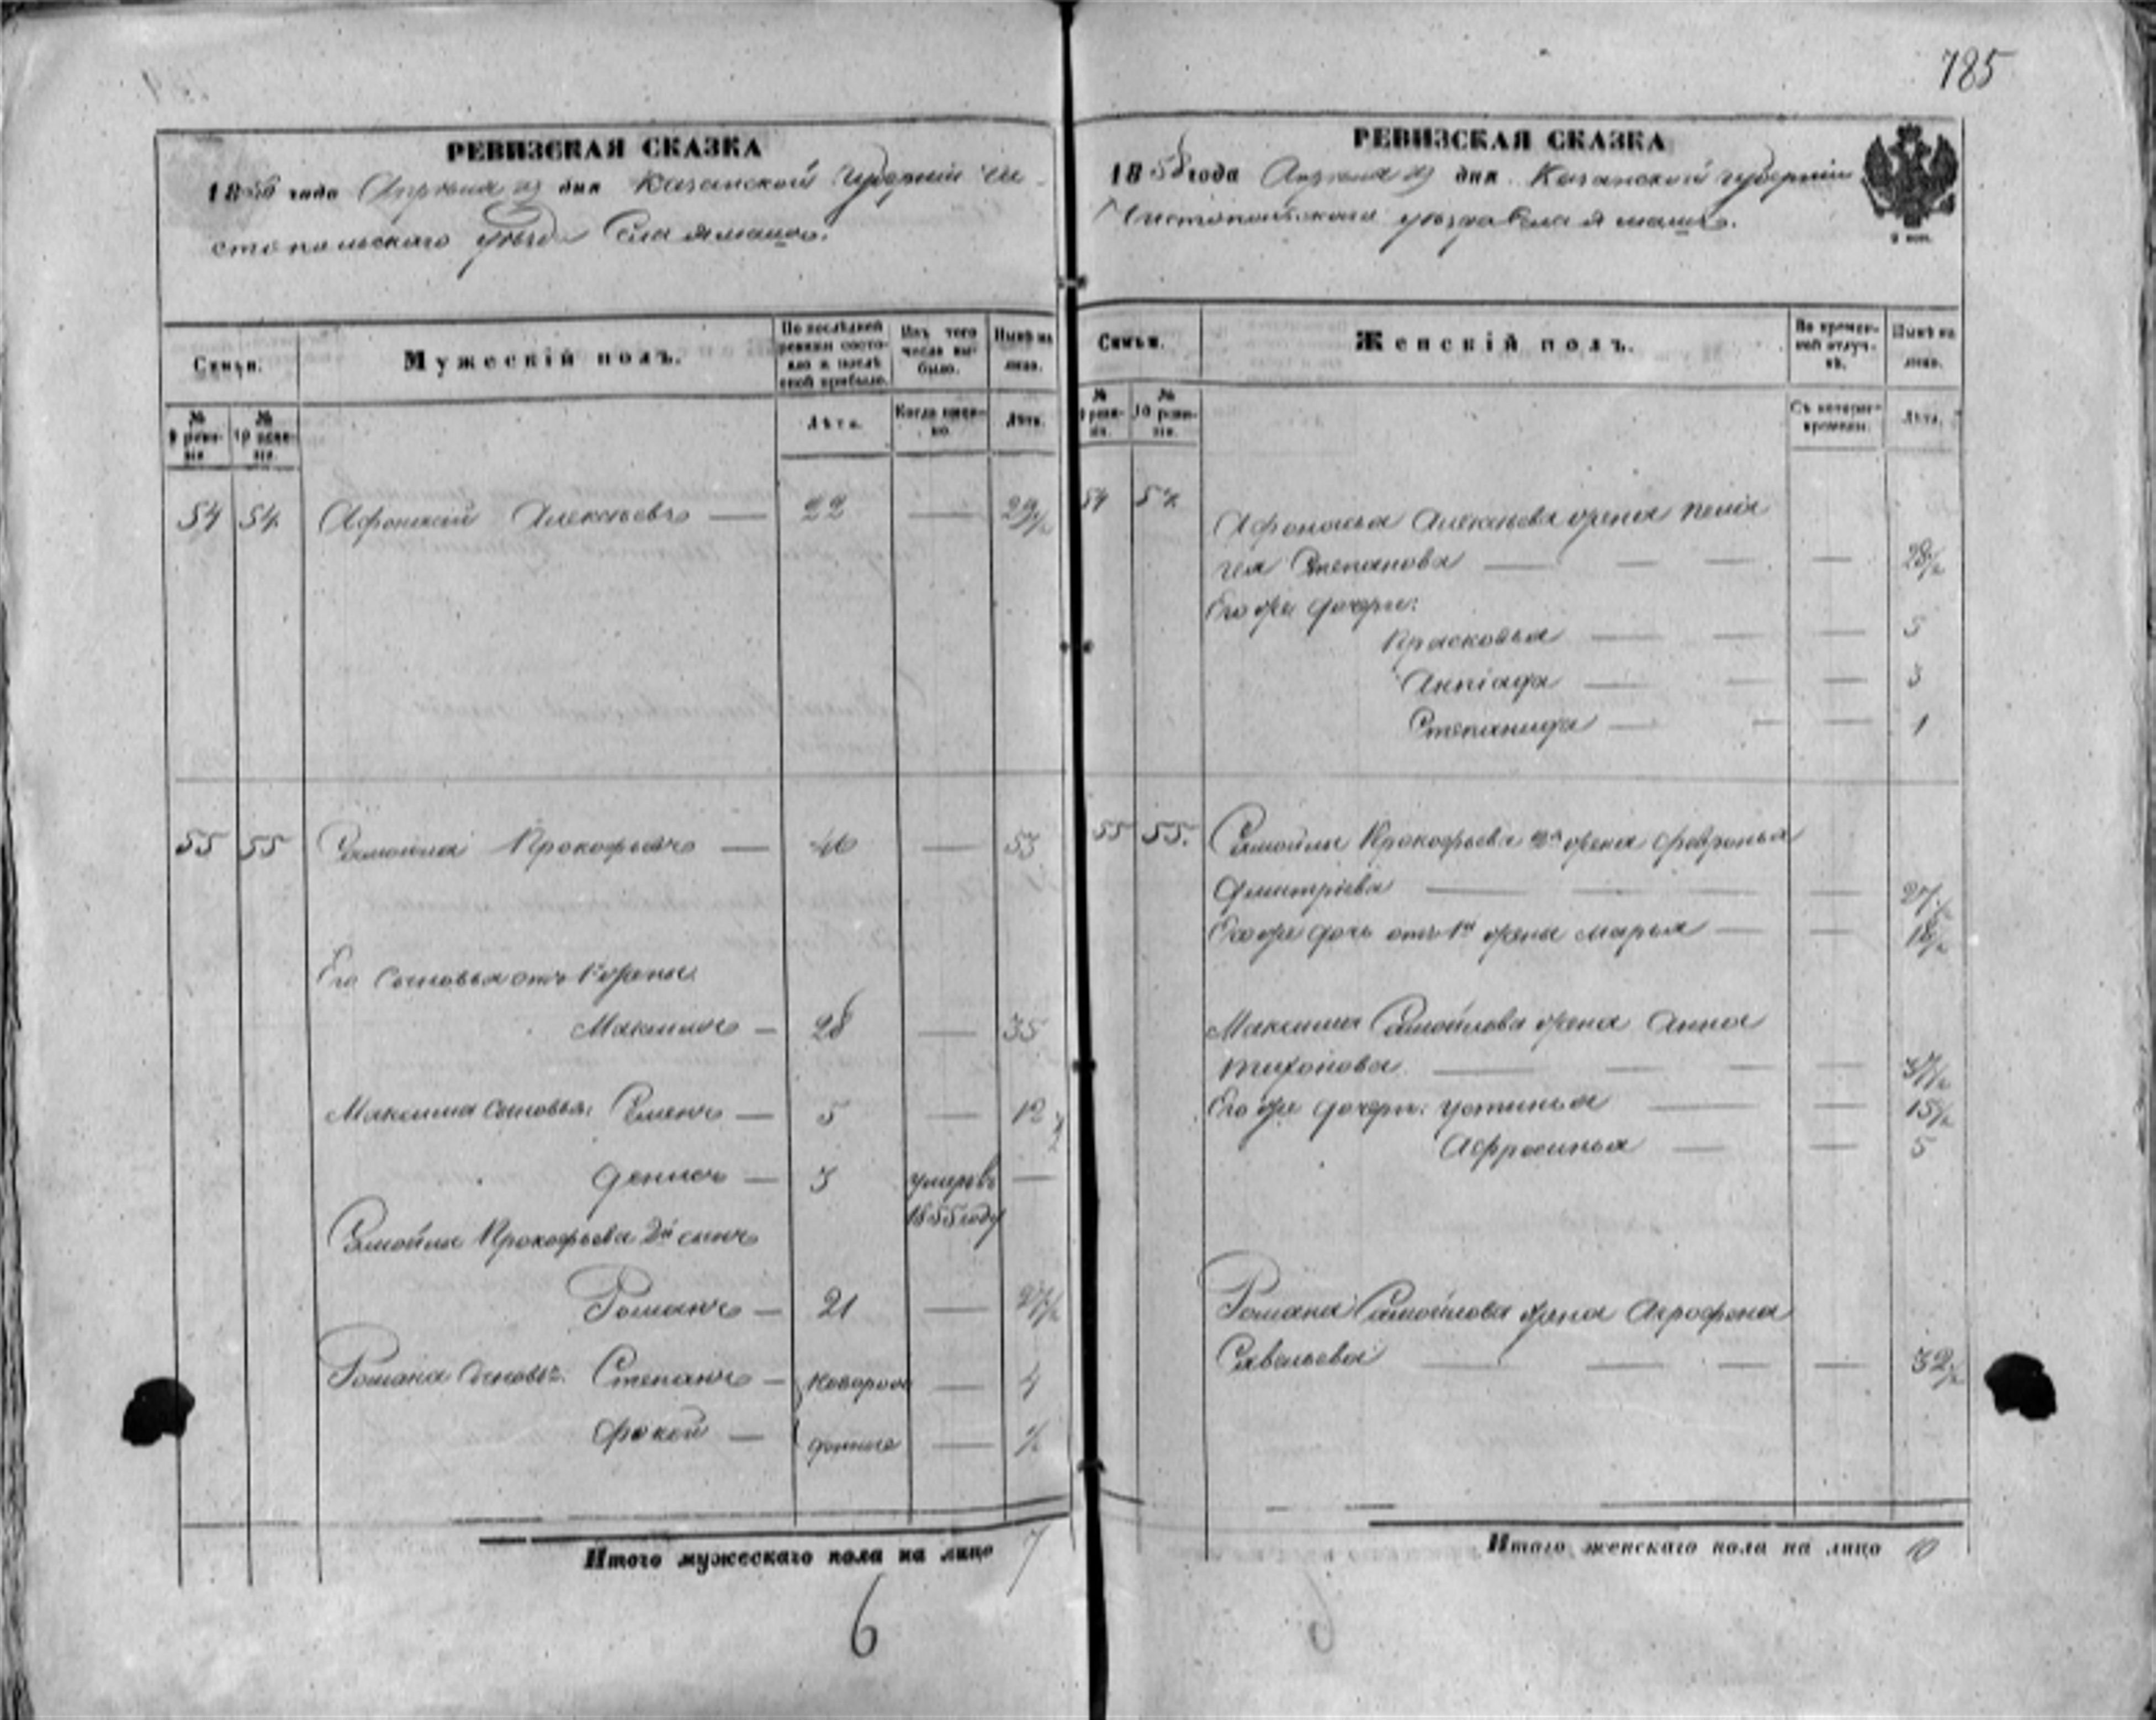 785
РЕВИЗСКАЯ СКАЗКА
1858 года Апреля дня Казанской Губерніи Чи-
стопольскаго уѣзда Села Ямашъ.
Семьи.
Мужескій полъ.
По послѣдней ревизіи состояло и послѣ оной прибыло.
Изъ того числа выбыло.
Нынѣ на лицо.
№ 9 ревизіи.
№ 10 ревизіи.
Лѣта.
Когда именно.
Лѣта.
54 54 Афонасій Алексѣевъ — 22 — 29½
55 55 Самойла Прокофьевъ — 46 — 53
Его Сыновья отъ 1й жены
Максимъ — 28 — 35
Максима Сыновья: Семенъ — 5 — 12½
Денисъ — 3 умеръ въ —
1855 году
Самойлы Прокофьева 2й сынъ
Романъ — 21 — ½
Романа Сыновья: Степанъ — новорож — 4
Фокей — денные — ½
Итого мужескаго пола на лицо 7
6
РЕВИЗСКАЯ СКАЗКА
1858 года Апреля дня Казанской губерніи
Чистопольскаго уѣзда Села Ямашъ.
Семьи.
Женскій полъ.
Во временной отлучкѣ.
Нынѣ на лицо.
№ 9 ревизіи.
№ 10 ревизіи.
Съ котораго времени.
Лѣта.
54 54 Афонасья Алексѣева жена Пела
гея Степанова — — — — 28½
Его же дочери:
Прасковья — — — 5
— — — 3
Степанида — — — 1
55 55. Самойлы Прокофьева 2я жена Февронья
Дмитріева — — — — 27½
Его же дочь отъ 1й жены Марья — — 18½
Максима Самойлова жена Анна
Тихонова — — — — ½
Его же дочери: Устинья — — 15½
Афросинья — — 5
Романа Самойлова жена Агрофена
Савельева — — — — 32½
Итого женскаго пола на лицо 10